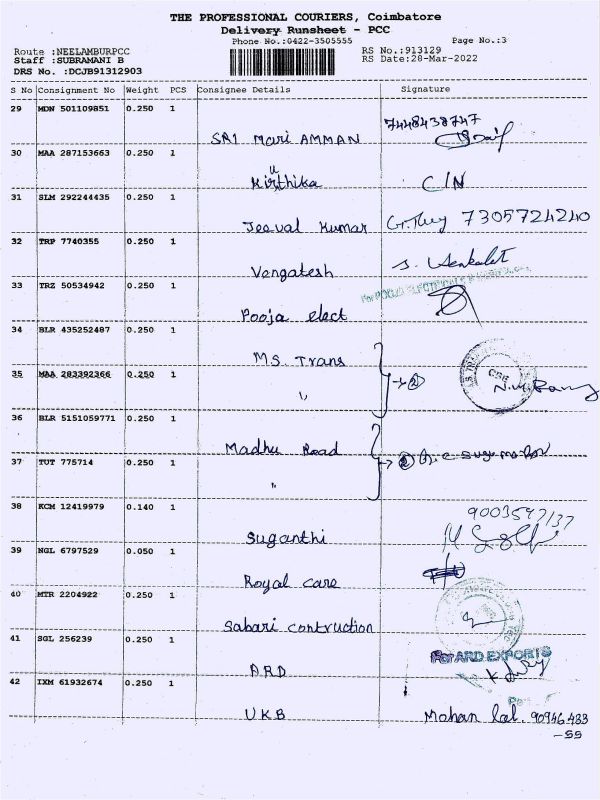 THE PROFESSIONAL COURIERS, Coimbatore
Delivery Runsheet - PCC
Phone No.:0422-3505555 Page No.:3
Route :NEELAMBURPCC RS No.:913129
Staff :SUBRAMANI B RS Date:28-Mar-2022
DRS No. :DCJB91312903
S No Consignment No Weight PCS Consignee Details Signature
29 MDN 501109851 0.250 1
SRI Mari AMMAN 7448438747
30 MAA 287153663 0.250 1
Kirthika C/N
31 SLM 292244435 0.250 1
Jeeval Kumar 7305724240
32 TRP 7740355 0.250 1
Vengatesh S. Venkalet
33 TRZ 50534942 0.250 1
Pooja elect For POOJA
34 BLR 435252487 0.250 1
MS. Trans
35 MAA 283392366 0.250 1
" 2
36 BLR 5151059771 0.250 1
Madhu Road
37 TUT 775714 0.250 1
" 2
38 KCM 12419979 0.140 1
Suganthi 9003597137
39 NGL 6797529 0.050 1
Royal care
40 MTR 2204922 0.250 1
Sabari contruction
41 SGL 256239 0.250 1
ARD For ARD EXPORTS
42 IXM 61932674 0.250 1
UKB Mohan lal. 90946-483
-55